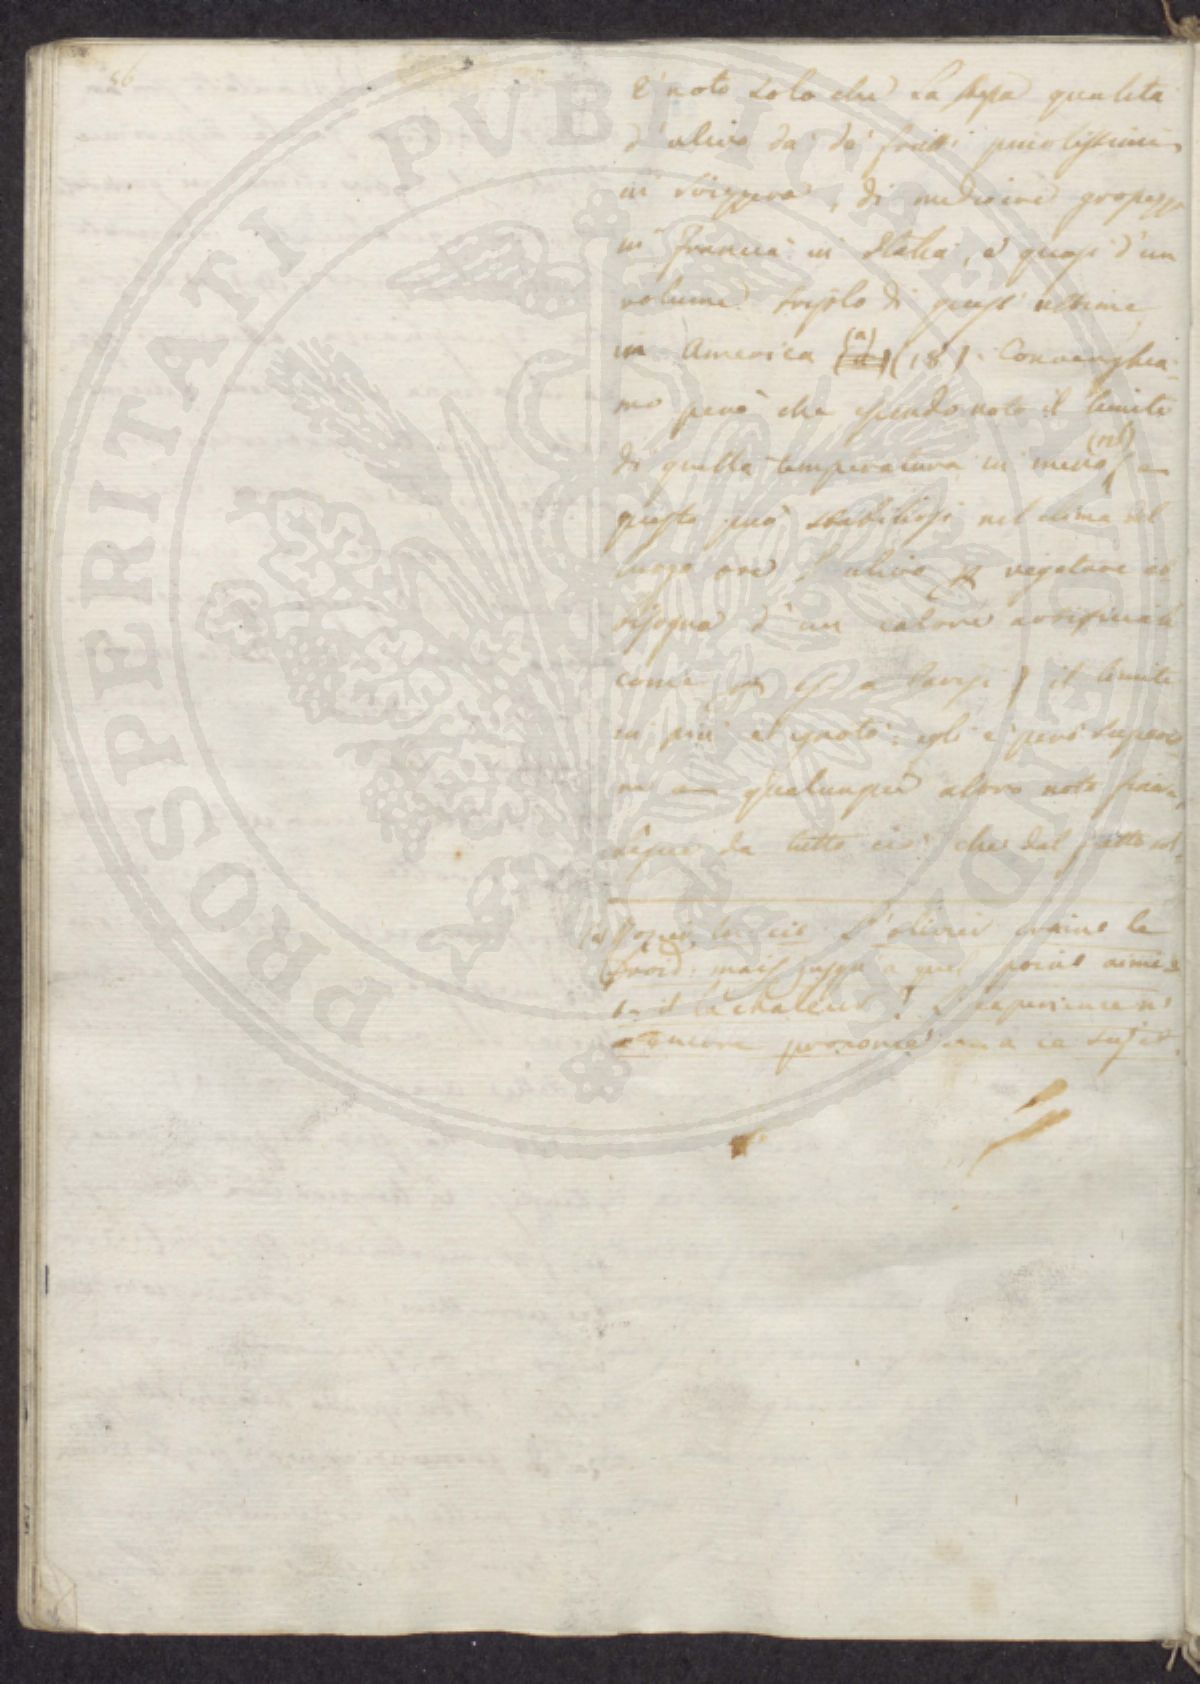 56
E' noto solo che la stessa qualità
d'olivo dà dà frutti piccolissimi
in Svizzera, di mediocre grossezza
in Francia in Italia, e quasi d'un
volume triplo di quest'ultime
in America (a) (18). Convenghia-
mo però che essendo noto il limite
di quella temperatura in meno (nb)
questo può stabilirsi nel clima del
luogo ove l'ulivo p vegetare à
bisogna d'un calore artificiale
come p. E. a Parigi) il limite
in più è ignoto: egli è però superio
re a qualunque altro noto fra
Segue da tutto ciò che dal fatto
(a) L'olivier craint le
froid: mais jusqu'a quel point aime-
t-il la chaleur? L'experience n'
a encore prononcé a ce sujet.
PROSPERITATI PVBLICAE AVGENDAE